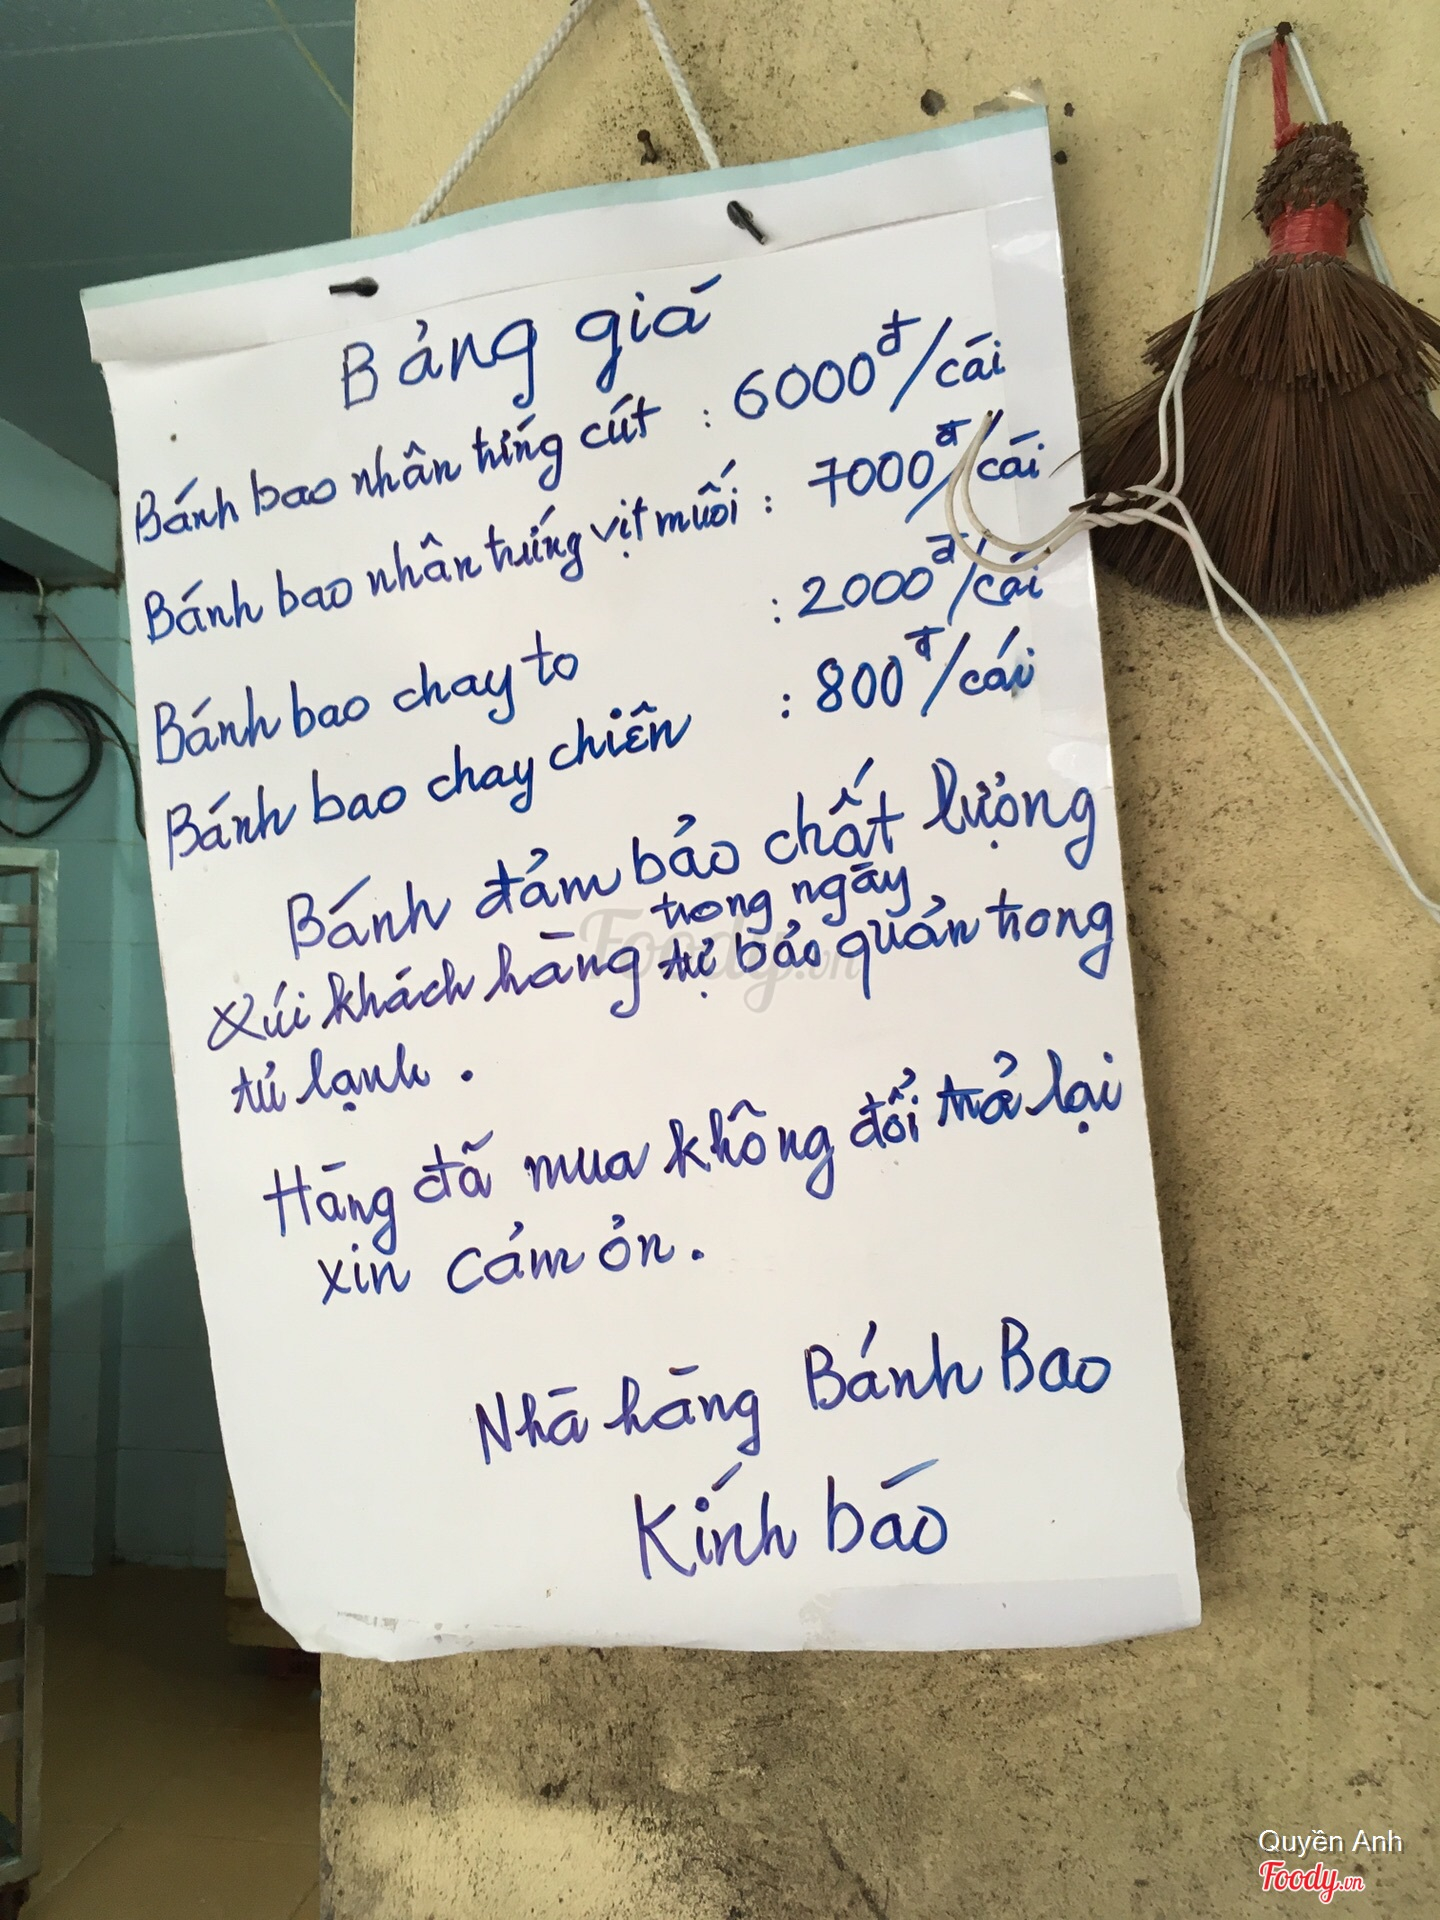 Bảng giá
Bánh bao nhân trứng cút : 6000đ/cái
Bánh bao nhân trứng vịt muối : 7000đ/cái
Bánh bao chay to : 2000đ/cái
Bánh bao chay chiên : 800đ/cái
Bánh đảm bảo chất lượng
trong ngày
Xúi khách hàng tự bảo quản trong
tủ lạnh .
Hàng đã mua không đổi trả lại
xin cảm ơn .
Nhà hàng Bánh Bao
Kính báo
Foody.vn
Quyền Anh
Foody.vn